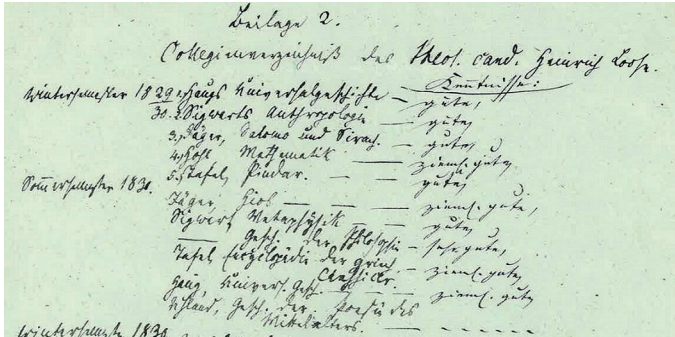 Beilage 2.
Collegienverzeichniß des Theol. cand. Heinrich Loose.
Kenntnisse:
Wintersemester 1829. 1. Haugs Universalgeschichte — gute,
30. 2. Sigwarts Anthropologie — gute,
3. Jäger, Salomo und Sirach. — gute,
4. Hohl Mathematik — zieml. gute,
5. Tafel, Pindar. — — gute,
Sommersemester 1830.
Jäger, Hiob — — — zieml. gute,
Sigwart Metaphysik — — gute,
— Gesch. der Philosophie — sehr gute,
Tafel Encyclopädie der griech. Classiker — zieml. gute,
Haug Univers. Gesch. — — zieml. gute
Uhland, Gesch. der Poesie des
Mittelalters. — - - - - - -
Wintersemester 1830